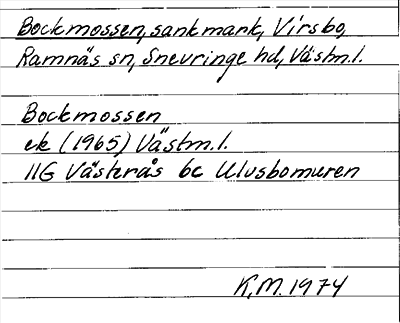 Bockmossen, sank mark, Virsbo,
Ramnäs sn, Snevringe hd, Västm.l.
Bockmossen
ek (1965) Västm.l.
11G Västerås 6c Ulvsbomuren
K.M. 1974